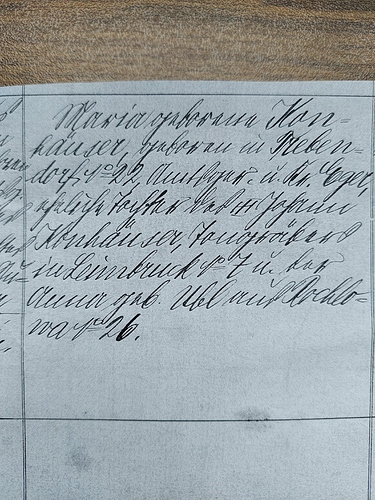 Maria geborene Kon-
häuser, geboren in Neben-
dorf, No 22 Amtsger. u. Kr. Eger
eheliche Tochter des ††† Johann
Konhäuser, Tongräbers
in Leimbruck No 7 u. der
Anna geb. Ubl aus Rochlo-
wa No 26.